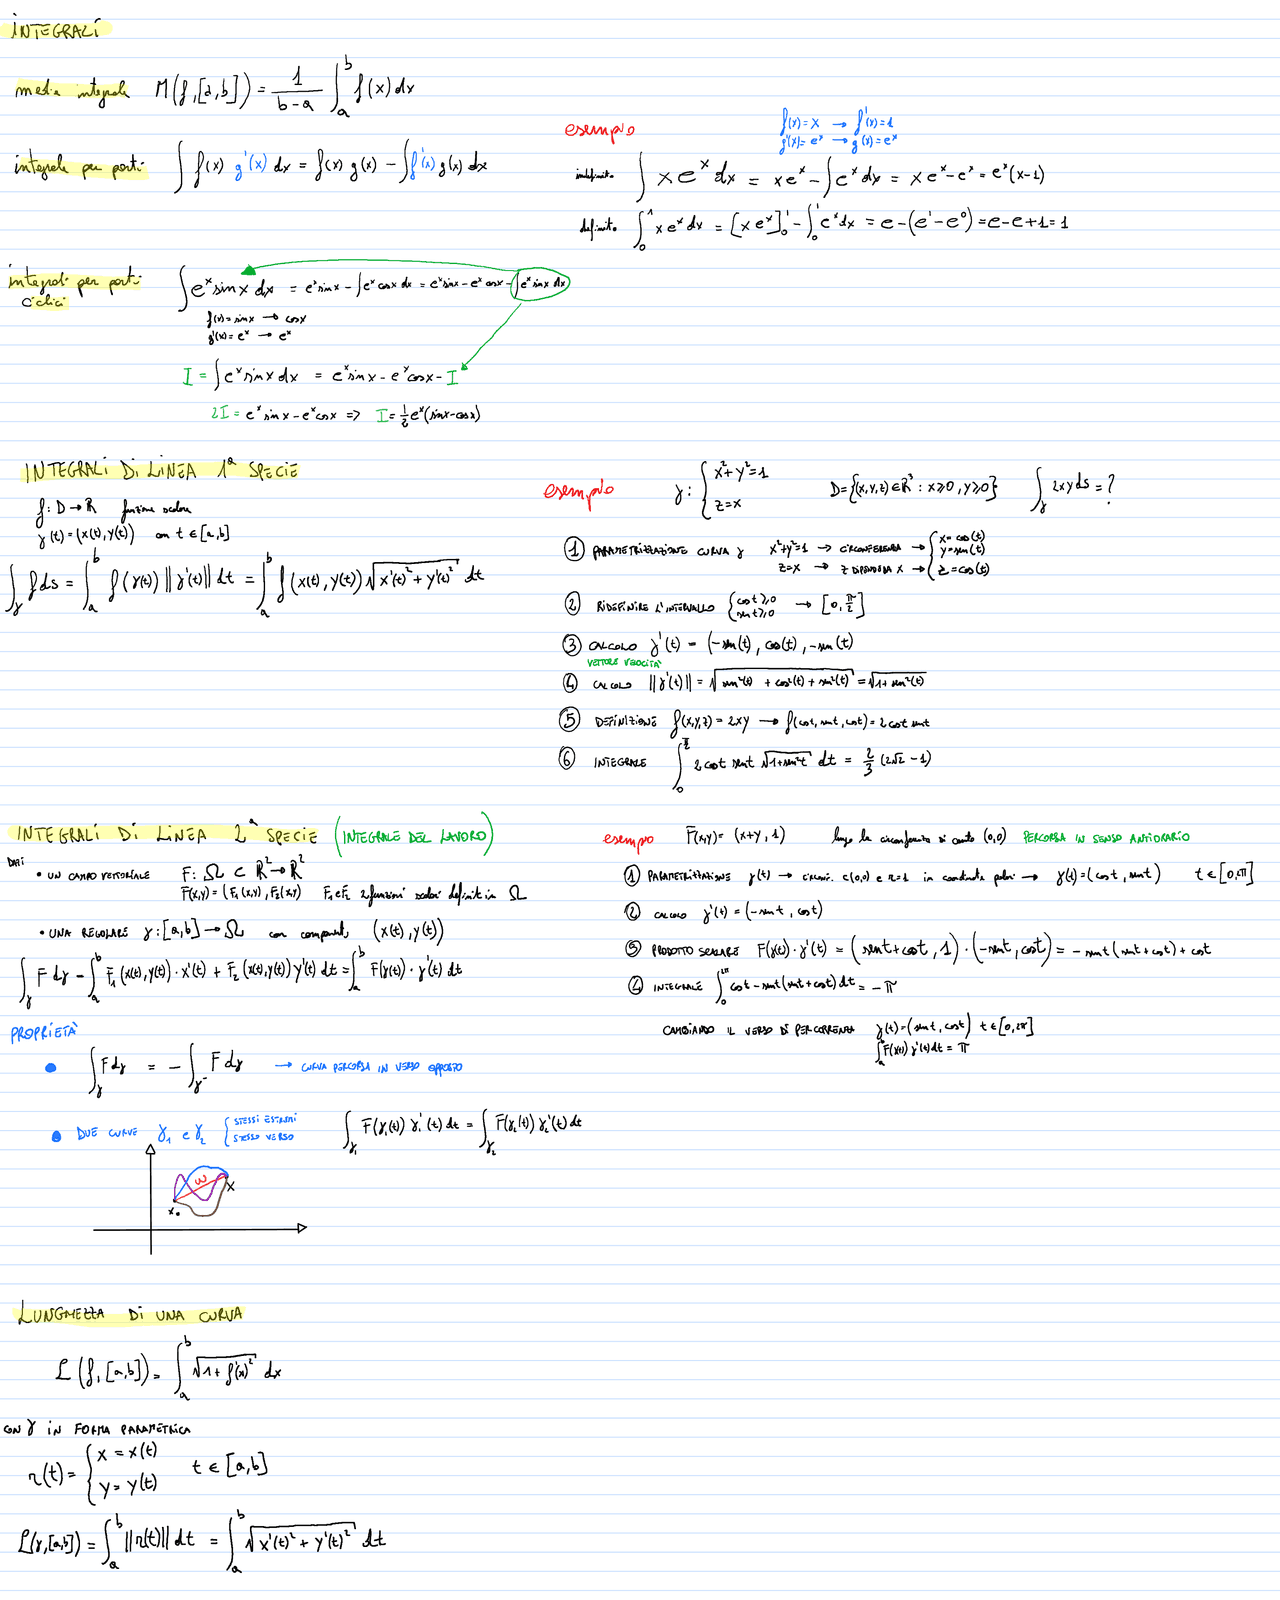 INTEGRALI
media integrale M(f,[a,b]) = 1/(b-a) ∫_a^b f(x) dx
integrale per parti ∫ f(x) g'(x) dx = f(x) g(x) - ∫ f'(x) g(x) dx
esempio
f(x) = x → f'(x) = 1
g'(x) = e^x → g(x) = e^x
indefinito ∫ x e^x dx = x e^x - ∫ e^x dx = x e^x - e^x = e^x (x-1)
definito ∫_0^1 x e^x dx = [x e^x]_0^1 - ∫_0^1 e^x dx = e - (e^1 - e^0) = e - e + 1 = 1
integrali per parti
ciclici
∫ e^x sin x dx = e^x sin x - ∫ e^x cos x dx = e^x sin x - e^x cos x - ∫ e^x sin x dx
f(x) = sin x → cos x
g'(x) = e^x → e^x
I = ∫ e^x sin x dx = e^x sin x - e^x cos x - I
2I = e^x sin x - e^x cos x => I = 1/2 e^x (sin x - cos x)
INTEGRALI DI LINEA 1ª SPECIE
f: D → R funzione scalare
γ(t) = (x(t), y(t)) con t ∈ [a,b]
∫_γ f ds = ∫_a^b f(γ(t)) ||γ'(t)|| dt = ∫_a^b f(x(t), y(t)) √(x'(t)² + y'(t)²) dt
esempio γ: { x² + y² = 1
z = x
D = {(x,y,z) ∈ R³ : x ≥ 0, y ≥ 0} ∫_γ 2xy ds = ?
① PARAMETRIZZAZIONE CURVA γ x²+y²=1 → CIRCONFERENZA → { x = cos(t)
y = sen(t)
z=x → z DIPENDE DA x → { z = cos(t)
② RIDEFINIRE L'INTERVALLO { cos t ≥ 0
sen t ≥ 0 → [0, π/2]
③ CALCOLO γ'(t) = (-sen(t), cos(t), -sen(t)
VETTORE VELOCITÀ
④ CALCOLO ||γ'(t)|| = √(sen²(t) + cos²(t) + sen²(t)) = √(1 + sen²(t))
⑤ DEFINIZIONE f(x,y,z) = 2xy → f(cos t, sen t, cos t) = 2 cos t sen t
⑥ INTEGRALE ∫_0^{π/2} 2 cos t sen t √(1+sen² t) dt = 2/3 (2√2 - 1)
INTEGRALI DI LINEA 2ª SPECIE (INTEGRALE DEL LAVORO)
DATI
• UN CAMPO VETTORIALE F: Ω ⊂ R² → R²
F(x,y) = (F₁(x,y), F₂(x,y) F₁ e F₂ 2 funzioni scalari definite in Ω
• UNA REGOLARE γ: [a,b] → Ω con componenti (x(t), y(t))
∫_γ F dγ = ∫_a^b F₁(x(t), y(t)) · x'(t) + F₂(x(t), y(t)) y'(t) dt = ∫_a^b F(γ(t)) · γ'(t) dt
esempio F(x,y) = (x+y, 1) lungo la circonferenza di centro (0,0) PERCORSA IN SENSO ANTIORARIO
① PARAMETRIZZAZIONE γ(t) → circonf. C(0,0) e r=1 in coordinate polari → γ(t) = (cos t, sen t) t ∈ [0,2π]
② CALCOLO γ'(t) = (-sen t, cos t)
③ PRODOTTO SCALARE F(γ(t)) · γ'(t) = (sen t + cos t, 1) · (-sen t, cos t) = -sen t (sen t + cos t) + cos t
④ INTEGRALE ∫_0^{2π} cos t - sen t (sen t + cos t) dt = -π
CAMBIANDO IL VERSO DI PERCORRENZA γ(t) = (sen t, cos t) t ∈ [0,2π]
∫_a^b F(γ(t)) γ'(t) dt = π
PROPRIETÀ
• ∫_γ F dγ = - ∫_γ⁻ F dγ → CURVA PERCORSA IN VERSO OPPOSTO
• DUE CURVE γ₁ e γ₂ { STESSI ESTREMI
STESSO VERSO
∫_γ₁ F(γ₁(t)) γ₁'(t) dt = ∫_γ₂ F(γ₂(t)) γ₂'(t) dt
ω
x
x₀
LUNGHEZZA DI UNA CURVA
L(f, [a,b]) = ∫_a^b √(1 + f'(x)²) dx
CON γ IN FORMA PARAMETRICA
r(t) = { x = x(t)
y = y(t) t ∈ [a,b]
L(γ,[a,b]) = ∫_a^b ||r(t)|| dt = ∫_a^b √(x'(t)² + y'(t)²) dt